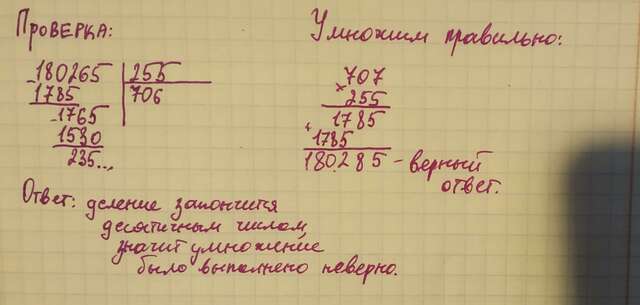 Проверка:
-180265 | 255
1785 | 706
-1765
1530
235...
Ответ: деление закончится
десятичным числом,
значит умножение
было выполнено неверно.
Умножим правильно:
707
× 255
1785
+ 1785
180285 - верный
ответ.